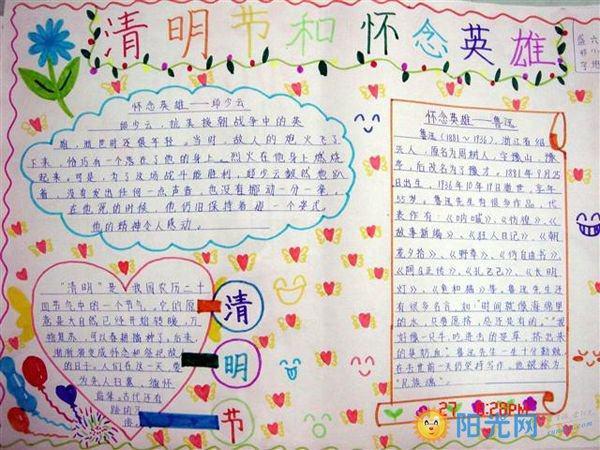 清明节和怀念英雄
怀念英雄——邱少云
邱少云,抗美援朝战争中的英
雄,逝世时还很年轻。当时,敌人的炮火飞了
下来,恰巧有一个落在了他的身上。烈火在他身上燃烧
起来,可是,为了这场战斗能胜利,邱少云毅然他趴
着,没有发出任何一点声音,也没有挪动一分一毫,
在他死的时候,他仍旧保持着趴一个姿式。
他的精神令人感动。
怀念英雄——鲁迅
鲁迅(1881~1936),浙江省绍
兴人,原名为周树人,字豫山,豫
亭,后改名为豫才。1881年9月25
日出生,1936年10月19日逝世,享年
55岁。鲁迅先生有很多作品,代
表作有:《呐喊》、《彷徨》、《
故事新编》、《狂人日记》、《朝
花夕拾》、《野草》、《伪自由书》、
《阿Q正传》、《孔乙己》、《长明
灯》、《鱼和猫》等。鲁迅先生还
有很多名言,如:"时间就像海绵里
的水,只要愿挤,总还是有的。""我
好像一只牛,吃进去的是草,挤出来
的是奶血"鲁迅先生一生十分勤奋,
在去世前一天仍坚持写作,他被称为
"民族魂"。
"清明"是我国农历二十
四节气中的一个节气,它的原
意是大自然已经开始转暖,万
物复苏,可以春耕播种了。后来,
渐渐演变成怀念和祭祀故
的日子。人们在这一天,要
为亲人扫墓,缅怀
清
明
节
阳光网